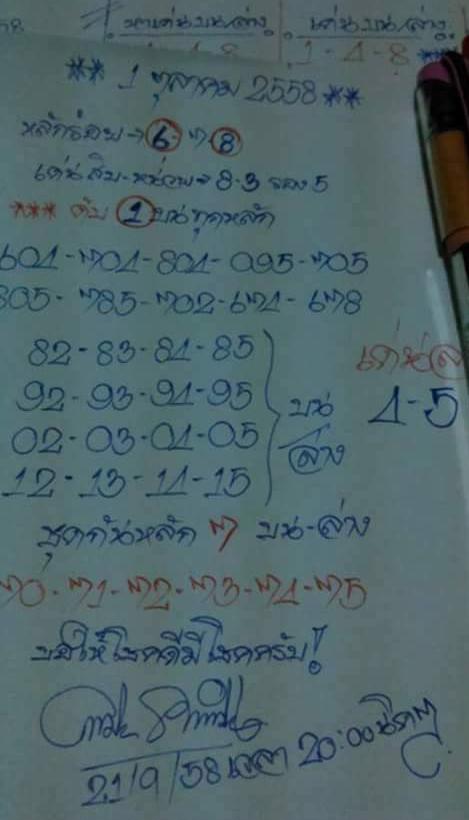 58
หาเด่นบน/ล่าง. เด่นบน/ล่าง.
1-4-8 **
** 1 ตุลาคม 2558 **
หลักร้อย → 6 - 7 8
เด่นสิบ-หน่วย → 8-3 รอง 5
*** ดับ 1 บนทุกหลัก
604-704-804-095-705
805-785-702-674-678
82-83-84-85
92-93-94-95
02-03-04-05
12-13-14-15
บน
ล่าง
4-5
ชุดกันหลัก 7 บน-ล่าง
70-71-72-73-74-75
ขอให้โชคดีมีโชคครับ!
21/9/58 เวลา 20:00